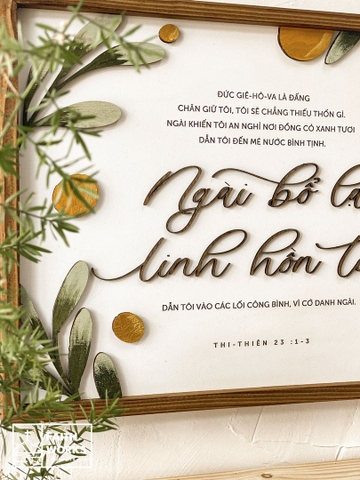 ĐỨC GIÊ-HÔ-VA LÀ ĐẤNG
CHĂN GIỮ TÔI, TÔI SẼ CHẲNG THIẾU THỐN GÌ.
NGÀI KHIẾN TÔI AN NGHỈ NƠI ĐỒNG CỎ XANH TƯƠI
DẪN TÔI ĐẾN MÉ NƯỚC BÌNH TỊNH.
Ngài bổ
linh hồn
DẪN TÔI VÀO CÁC LỐI CÔNG BÌNH, VÌ CỚ DANH NGÀI.
THI-THIÊN 23 :1-3